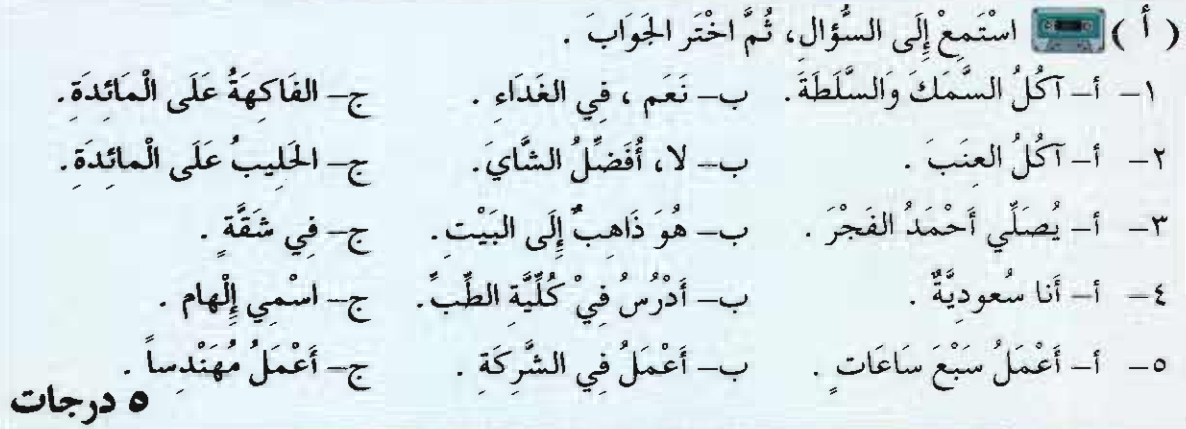 ( أ ) اسْتَمِعْ إِلَى السُّؤالِ، ثُمَّ اخْتَر الجَوَابَ .
١- أ- آكُلُ السَّمَكَ وَالسَّلَطَةَ. ب- نَعَم ، في الغَدَاءِ . ج- الفَاكِهَةُ عَلَى الْمَائِدَةِ.
٢- أ- آكُلُ العِنَبَ . ب- لا، أُفَضِّلُ الشَّايَ. ج- الحَلِيبُ عَلَى الْمائِدَةِ.
٣- أ- يُصَلِّي أَحْمَدُ الفَجْرَ . ب- هُوَ ذَاهِبٌ إِلَى البَيْتِ. ج- فِي شَقَّةٍ .
٤- أ- أَنا سُعودِيَّةٌ . ب- أَدْرُسُ فِيْ كُلِّيَّةِ الطِّبِّ. ج- اسْمِي إِلْهام .
٥- أ- أَعْمَلُ سَبْعَ سَاعَاتٍ . ب- أَعْمَلُ فِي الشَّرِكَةِ . ج- أَعْمَلُ مُهَنْدِساً .
٥ درجات